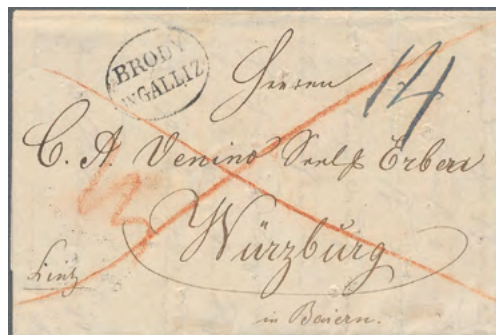 BRODY
IN GALLIZ
Herren
14
C. A. Venino Seel. Erben
Würzburg
Linz
in Baiern.